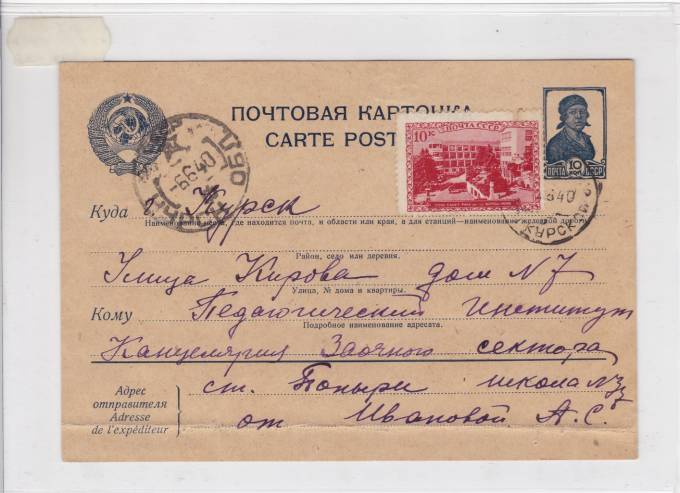 ПОЧТОВАЯ КАРТОЧКА
CARTE POST
10К ПОЧТА СССР
10
ПОЧТА СССР
Куда г. Курск
Наименование места, где находится почта, и области или края, а для станций—наименование железной дороги
Район, село или деревня.
Улица Кирова дом N 7
Улица, № дома и квартиры.
Кому Педагогический Институт
Подробное наименование адресата.
Канцелярия Заочного сектора
Адрес отправителя
Adresse de l'expéditeur
ст. Поныри школа N
от Ивановой А. С.
6 40
КУРСК